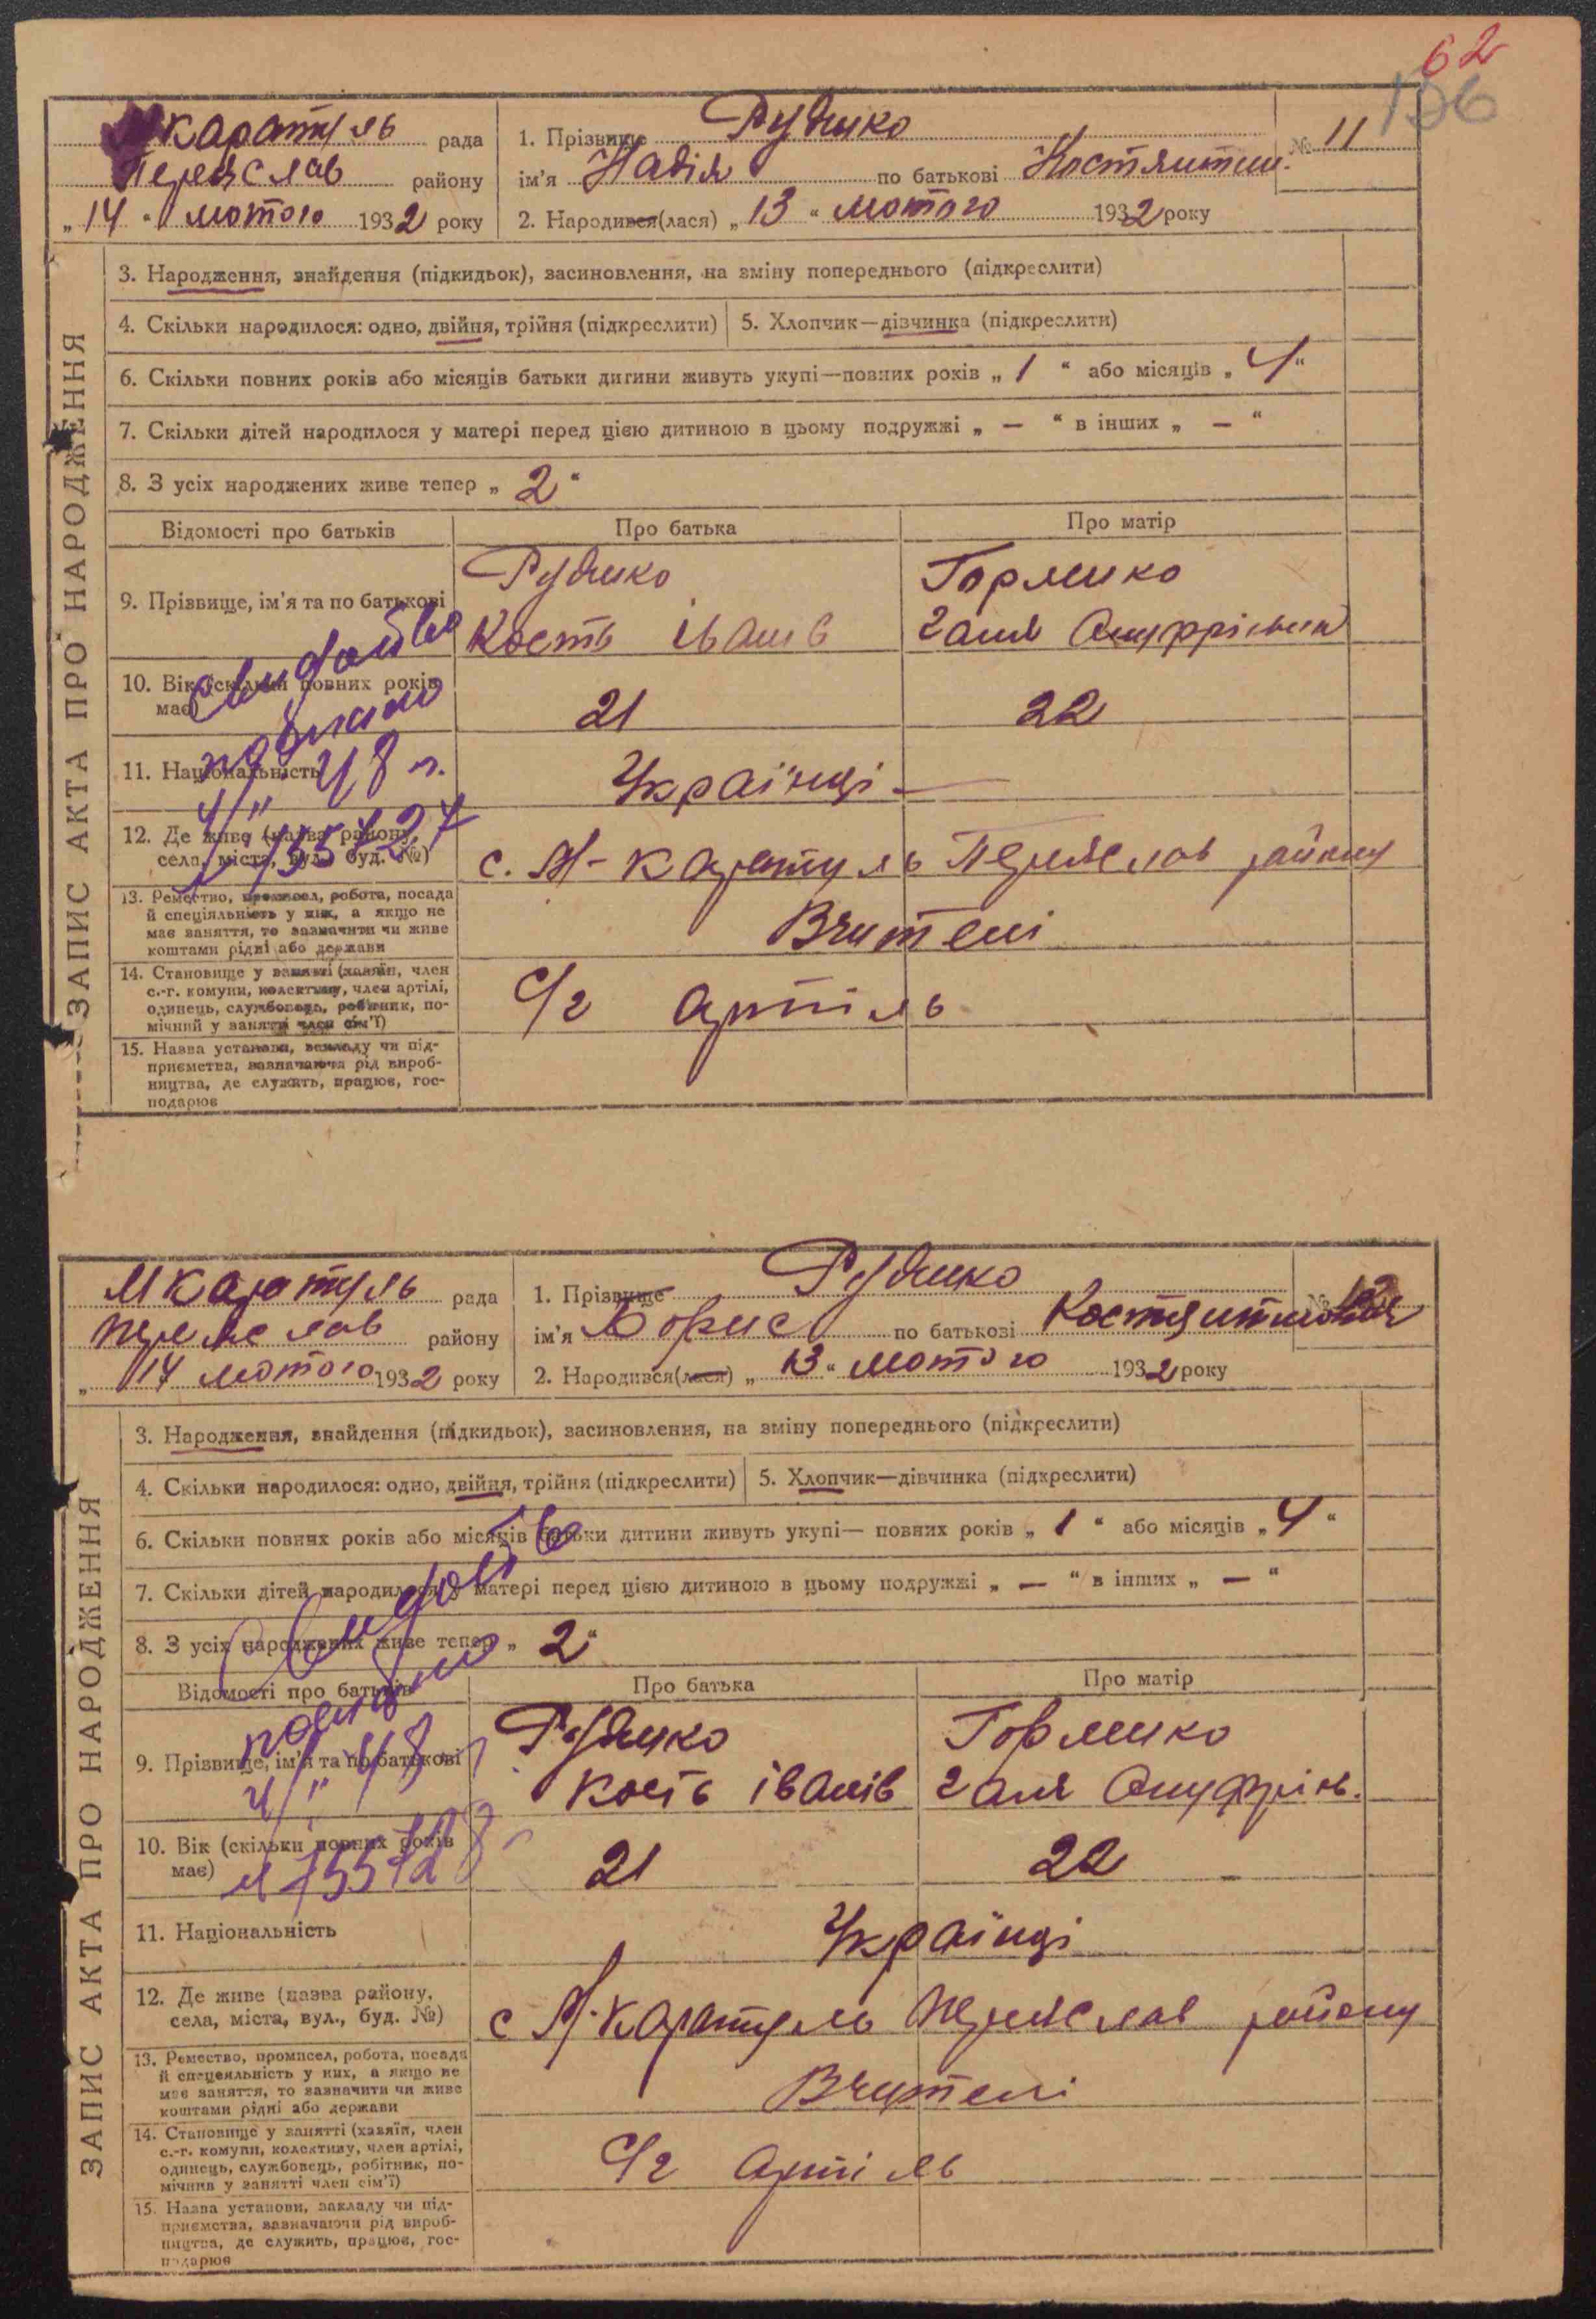 62
106
М Каратуль рада
Переяслав району
„14“ лютого 1932 року
1. Прізвище Рудико № 11
ім'я Надія по батькові Костянтин.
2. Народився(лася) „13“ лютого 1932 року
ЗАПИС АКТА ПРО НАРОДЖЕННЯ
3. Народження, знайдення (підкидьок), засиновлення, на зміну попереднього (підкреслити)
4. Скільки народилося: одно, двійня, трійня (підкреслити) 5. Хлопчик—дівчинка (підкреслити)
6. Скільки повних років або місяців батьки дитини живуть укупі—повних років „ 1 “ або місяців „ 4 “
7. Скільки дітей народилося у матері перед цією дитиною в цьому подружжі „ — “ в інших „ — “
8. З усіх народжених живе тепер „ 2 “
Відомості про батьків Про батька Про матір
9. Прізвище, ім'я та по батькові
Рудико Гормико
Кость Іванів Галя Ануфріївна
10. Вік (скільки повних років має) 21 22
11. Національність Українці —
12. Де живе (назва району, села, міста, вул., буд. №) с. М-Каратуль Переяслав району
13. Ремество, промисел, робота, посада
й спеціяльність у них, а якщо не
має заняття, то зазначити чи живе
коштами рідні або держави
Вчителі
14. Становище у занятті (хазяїн, член
с.-г. комуни, колективу, член артілі,
одинець, службовець, робітник, по-
мічний у занятті член сім'ї)
С/г артіль
15. Назва установи, закладу чи під-
приємства, зазначаючи рід вироб-
ництва, де служить, працює, гос-
подарює
4/II 48 р.
155727
М Каратуль рада
Переяслав району
„14 лютого 1932 року
1. Прізвище Рудико № 12
ім'я Борис по батькові Костянтинович
2. Народився(лася) „ 13 “ лютого 1932 року
ЗАПИС АКТА ПРО НАРОДЖЕННЯ
3. Народження, знайдення (підкидьок), засиновлення, на зміну попереднього (підкреслити)
4. Скільки народилося: одно, двійня, трійня (підкреслити) 5. Хлопчик—дівчинка (підкреслити)
6. Скільки повних років або місяців батьки дитини живуть укупі— повних років „ 1 “ або місяців „ 4 “
7. Скільки дітей народилося у матері перед цією дитиною в цьому подружжі „ — “ в інших „ — “
8. З усіх народжених живе тепер „ 2 “
Відомості про батьків Про батька Про матір
9. Прізвище, ім'я та по батькові
Рудико Гормико
Кость Іванів Галя Ануфріїв.
10. Вік (скільки повних років має) 21 22
11. Національність Українці
12. Де живе (назва району, села, міста, вул., буд. №) с М-Каратуль Переяслав району
13. Ремество, промисел, робота, посада
й спецеяльність у них, а якщо не
має заняття, то зазначити чи живе
коштами рідні або держави
Вчителі
14. Становище у занятті (хазяїн, член
с.-г. комуни, колективу, член артілі,
одинець, службовець, робітник, по-
мічний у занятті член сім'ї)
С/г артіль
15. Назва установи, закладу чи під-
приємства, зазначаючи рід вироб-
ництва, де служить, працює, гос-
подарює
4/II 48 р
155728